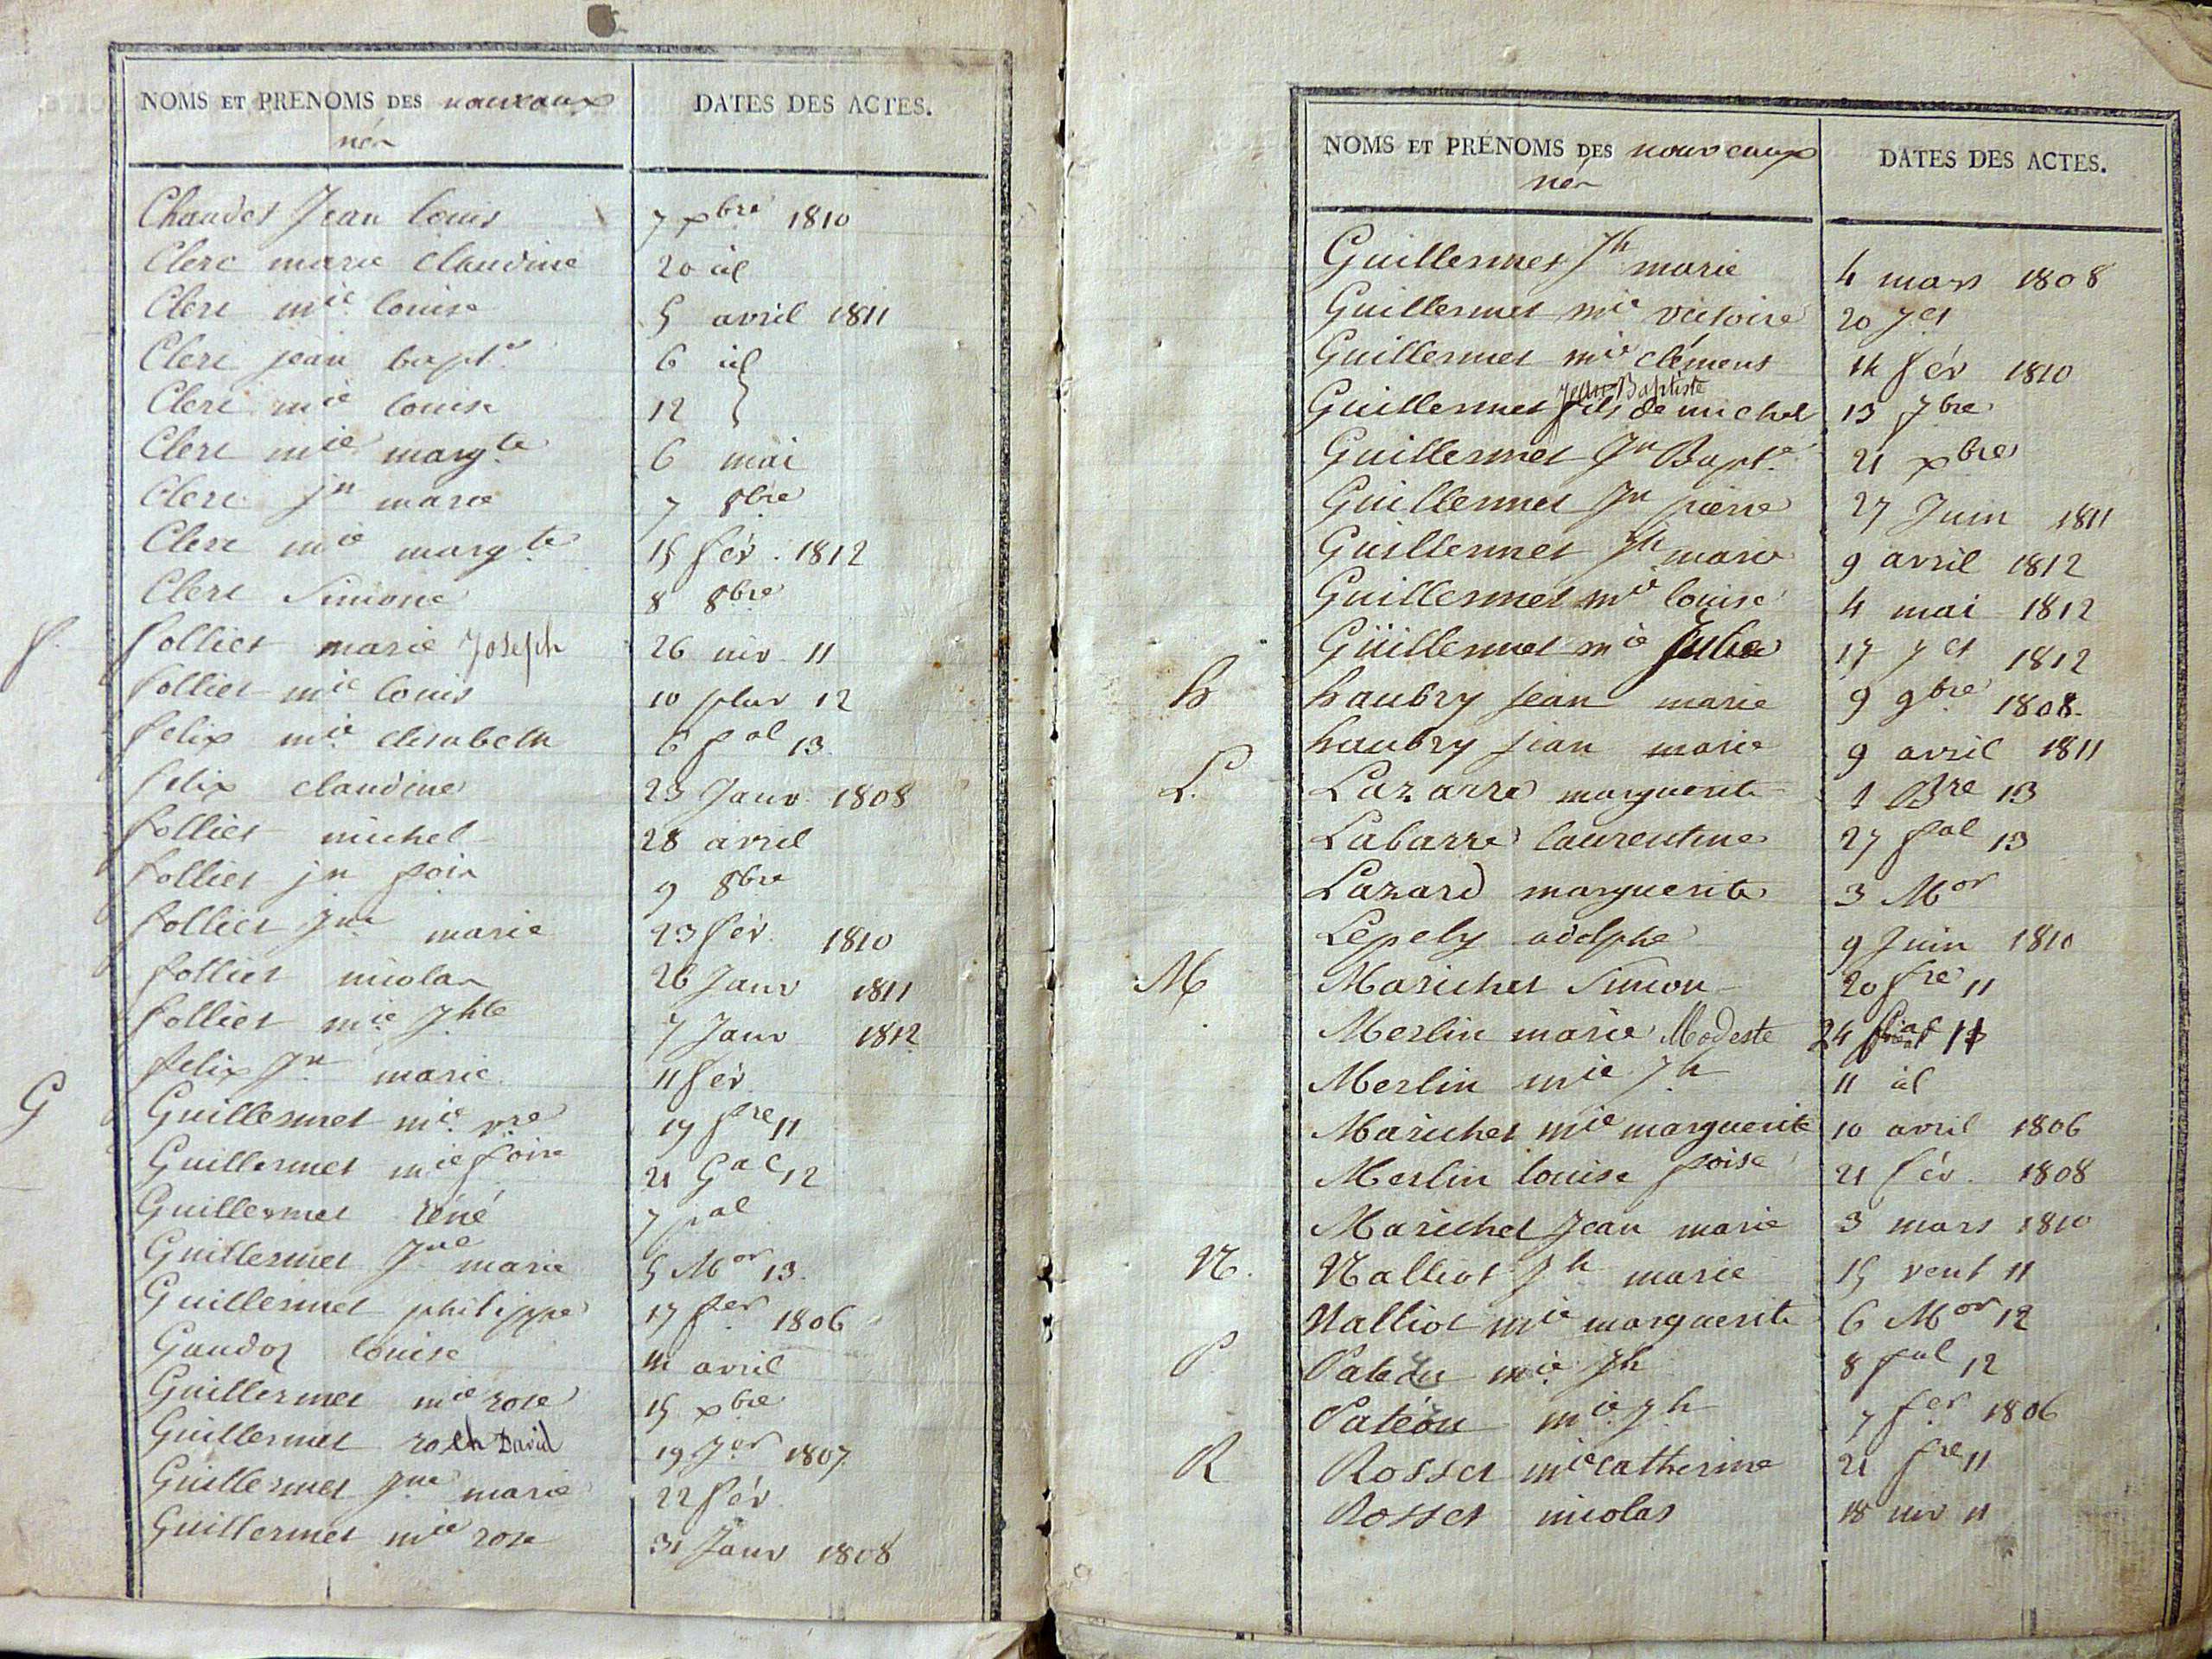 NOMS ET PRENOMS DES nouveaux
nés
DATES DES ACTES.
Chaudet Jean louis 7 xbre 1810
Clerc marie claudine 20 id
Clerc mie louise 5 avril 1811
Clerc jean bapte 6 id
Clerc mie louise 12
Clerc mie margte 6 mai
Clerc jn marie 7 8bre
Clerc mie margte 15 fév. 1812
Clerc Simone 8 8bre
f. folliet marie Joseph 26 niv 11
folliet mie louis 10 pluv 12
felix mie elisabeth 6 pal 13
felix claudine 23 Janv 1808
folliet michel 28 avril
folliet jn fois 9 8bre
folliet Jne marie 23 fév. 1810
folliet nicolas 26 Janv 1811
folliet mie Jhte 7 Janv 1812
felix Jn marie 11 fév
G Guillermet mie vre 19 fre 11
Guillermet mie foise 21 Gal 12
Guillermet réné 7 pal
Guillermet Jne marie 5 Mor 13.
Guillermet philippe 17 fer 1806
Gaudoz louise 11 avril
Guillermet mie rose 15 xbre
Guillermet roch David 19 Jer 1807
Guillermet Jne marie 22 fév.
Guillermet mie rose 31 Janv 1808
NOMS ET PRÉNOMS DES nouveaux
nés
DATES DES ACTES.
Guillermet Jh marie 4 mars 1808
Guillermet mie victoire 20 Jet
Guillermet mie clémens 14 fév 1810
Jean Baptiste
Guillermet fils de michel 13 7bre
Guillermet Jn Bapte 21 xbre
Guillermet Jn pierre 27 Juin 1811
Guillermet Jh marie 9 avril 1812
Guillermet mie louise 4 mai 1812
Guillermet mie Julie 17 Jet 1812
h haubry jean marie 9 9bre 1808.
haubry jean marie 9 avril 1811
L. Lazarre marguerite 1 Bre 13
Labarre laurentine 27 fal 13
Lazard marguerite 3 Mor
Lépely adolphe 9 Juin 1810
M Marichet Simon 20 fre 11
Merlin marie Modeste 24
Merlin mie Jh 11 id
Marichet mie marguerite 10 avril 1806
Merlin louise foise 21 fév. 1808
Marichet Jean marie 3 mars 1810
N. Nalliot Jh marie 15 vent 11
Nalliot mie marguerite 6 Mor 12
P mie Jh 8 fal 12
Patéou mie Jh 7 fer 1806
R Rosset mie catherine 21 fre 11
Rosset nicolas 18 niv 11